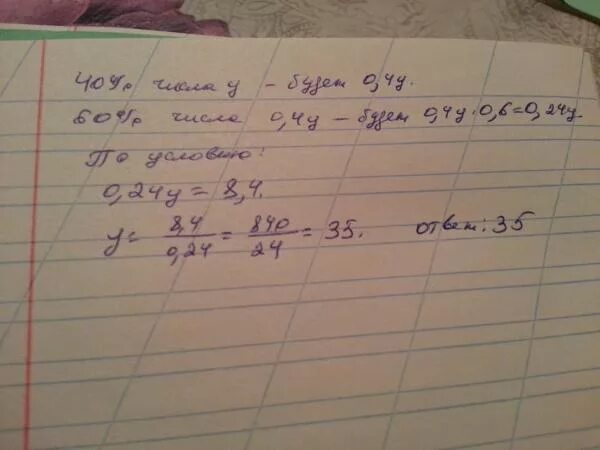 40% числа y – будет 0,4y.
60% числа 0,4y – будет 0,4y·0,6=0,24y.
По условию:
0,24y = 8,4.
y = 8,4/0,24 = 840/24 = 35. ответ: 35